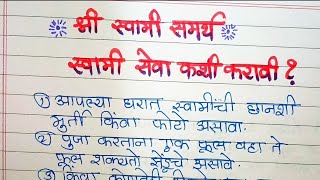 श्री स्वामी समर्थ
स्वामी सेवा कशी करावी ?
① आपल्या घरात स्वामींची छानशी
मुर्ती किंवा फोटो असावा.
② पुजा करताना एक फुल वहा ते
फुल शक्यतो झेंडूचे असावे.
③ किंवा कोणतेही